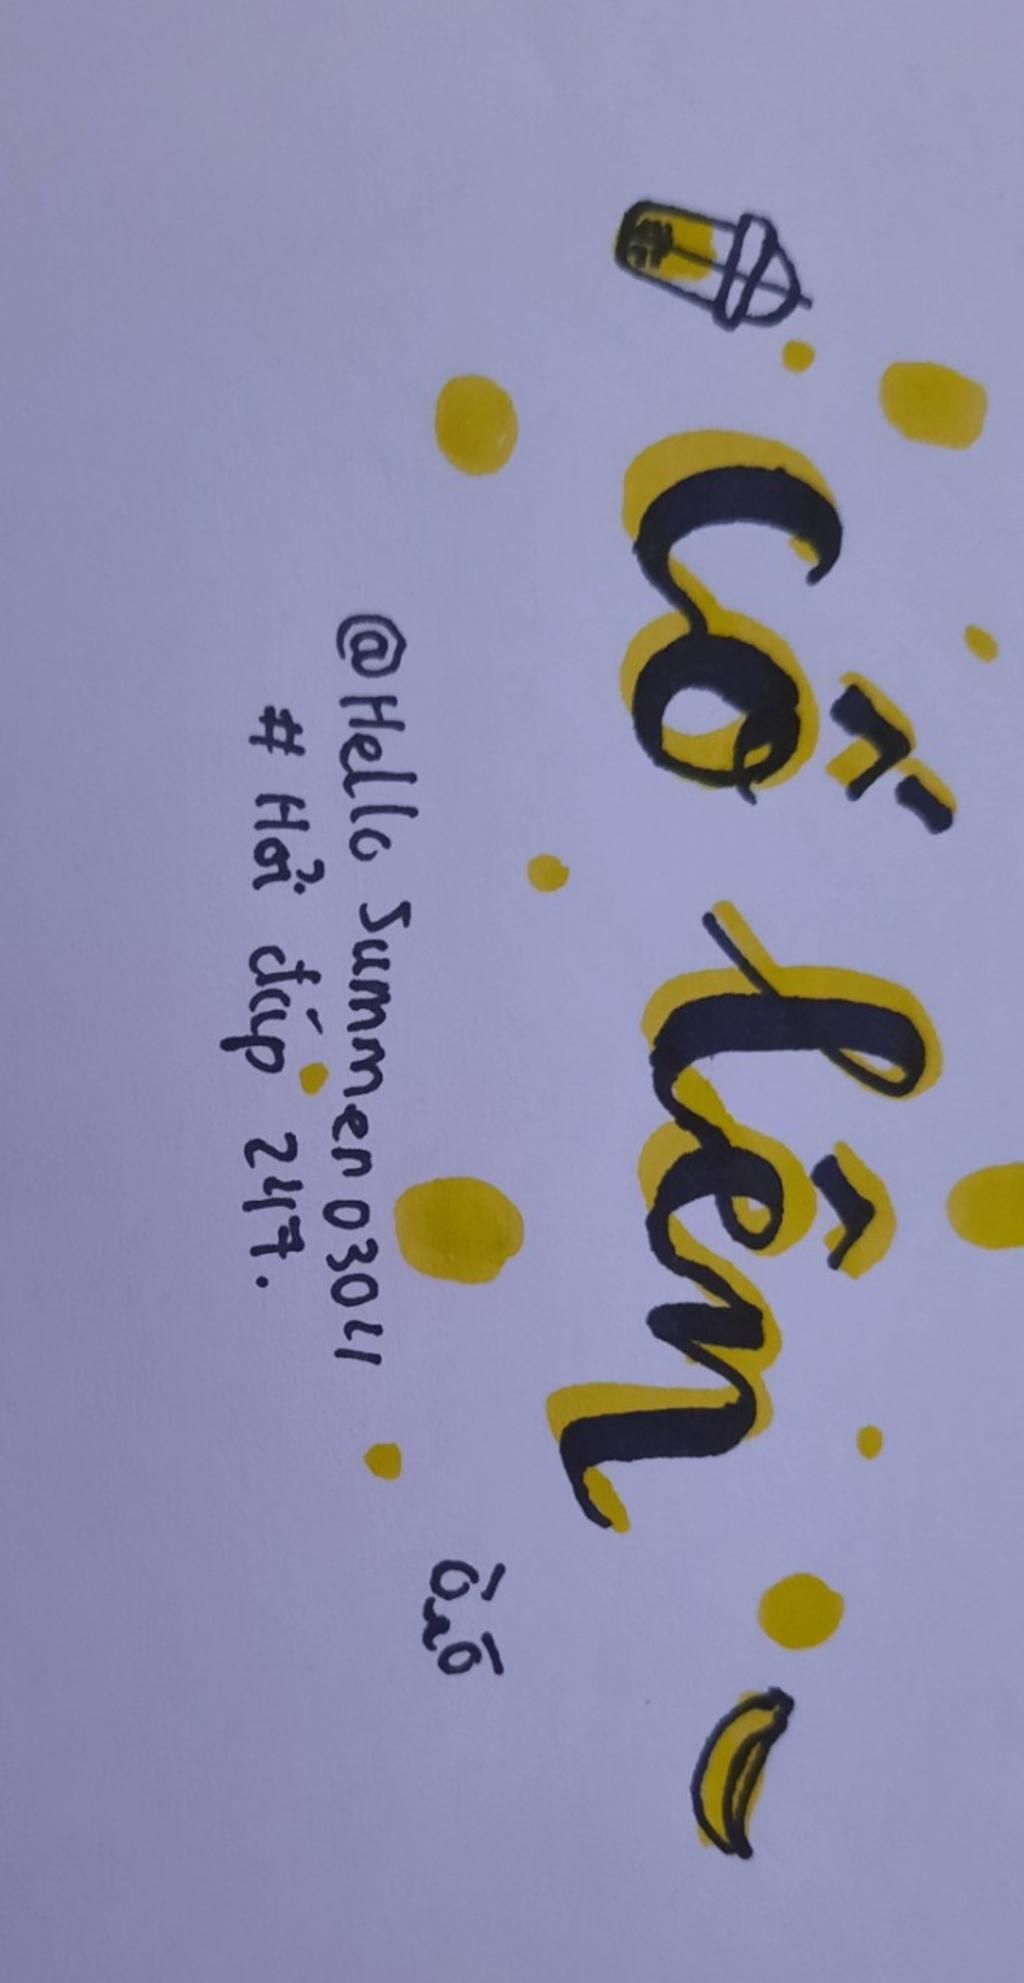 Cố lên
@Hello Summer 0304
# Hỏi đáp 247.